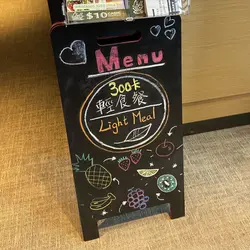 $10
Menu
300卡
輕食餐
Light Meal